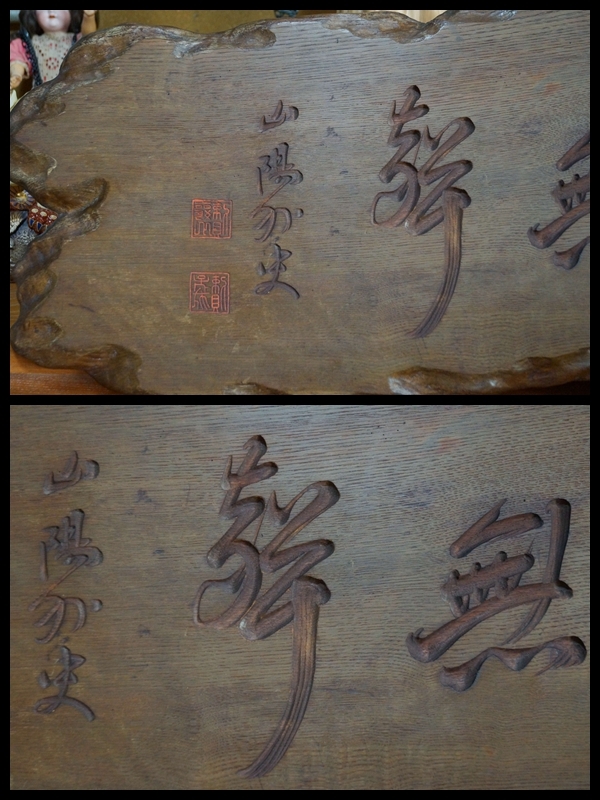 無聲
山陽外史
無聲
山陽外史